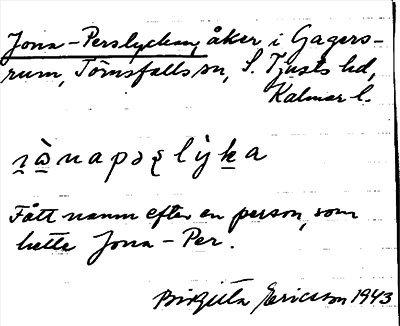 Jona-Perslyckan, åker i Gagers-
rum, Törnsfalls sn, S. Tjusts hd,
Kalmar l.
Fått namn efter en person, som
hette Jona-Per.
Birgitta Ericsson 1943